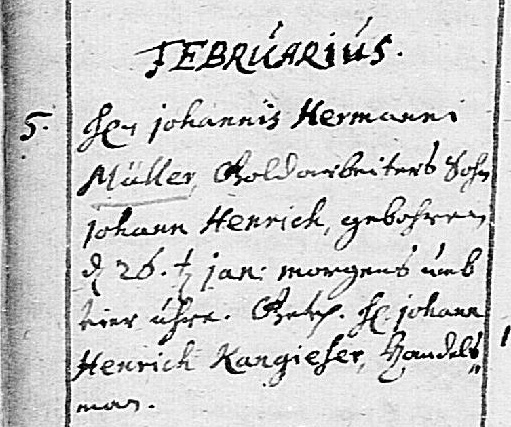 FEBRUARIUS.
5. Hn Johannis Hermanni
Müller, Goldarbeiters Sohn
Johann Henrich, gebohren
d 26.t Jan: morgens umb
vier uhre. Gev. H Johann
Henrich Kangieser, Handels
man.